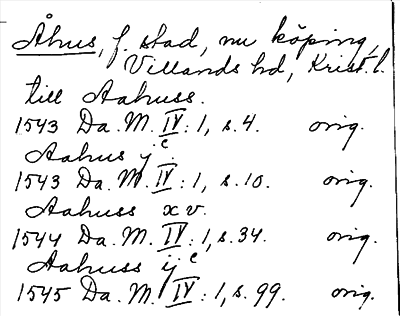 Åhus, f. stad, nu köping,
Villands hd, Krist. l.
till Aahuss.
1543 Da. M. IV : 1, s. 4. orig.
Aahus ij c
1543 Da. M. IV : 1, s. 10. orig.
Aahuss xv.
1544 Da. M. IV : 1, s. 34. orig.
Aahuss ij c
1545 Da. M. IV : 1, s. 99. orig.